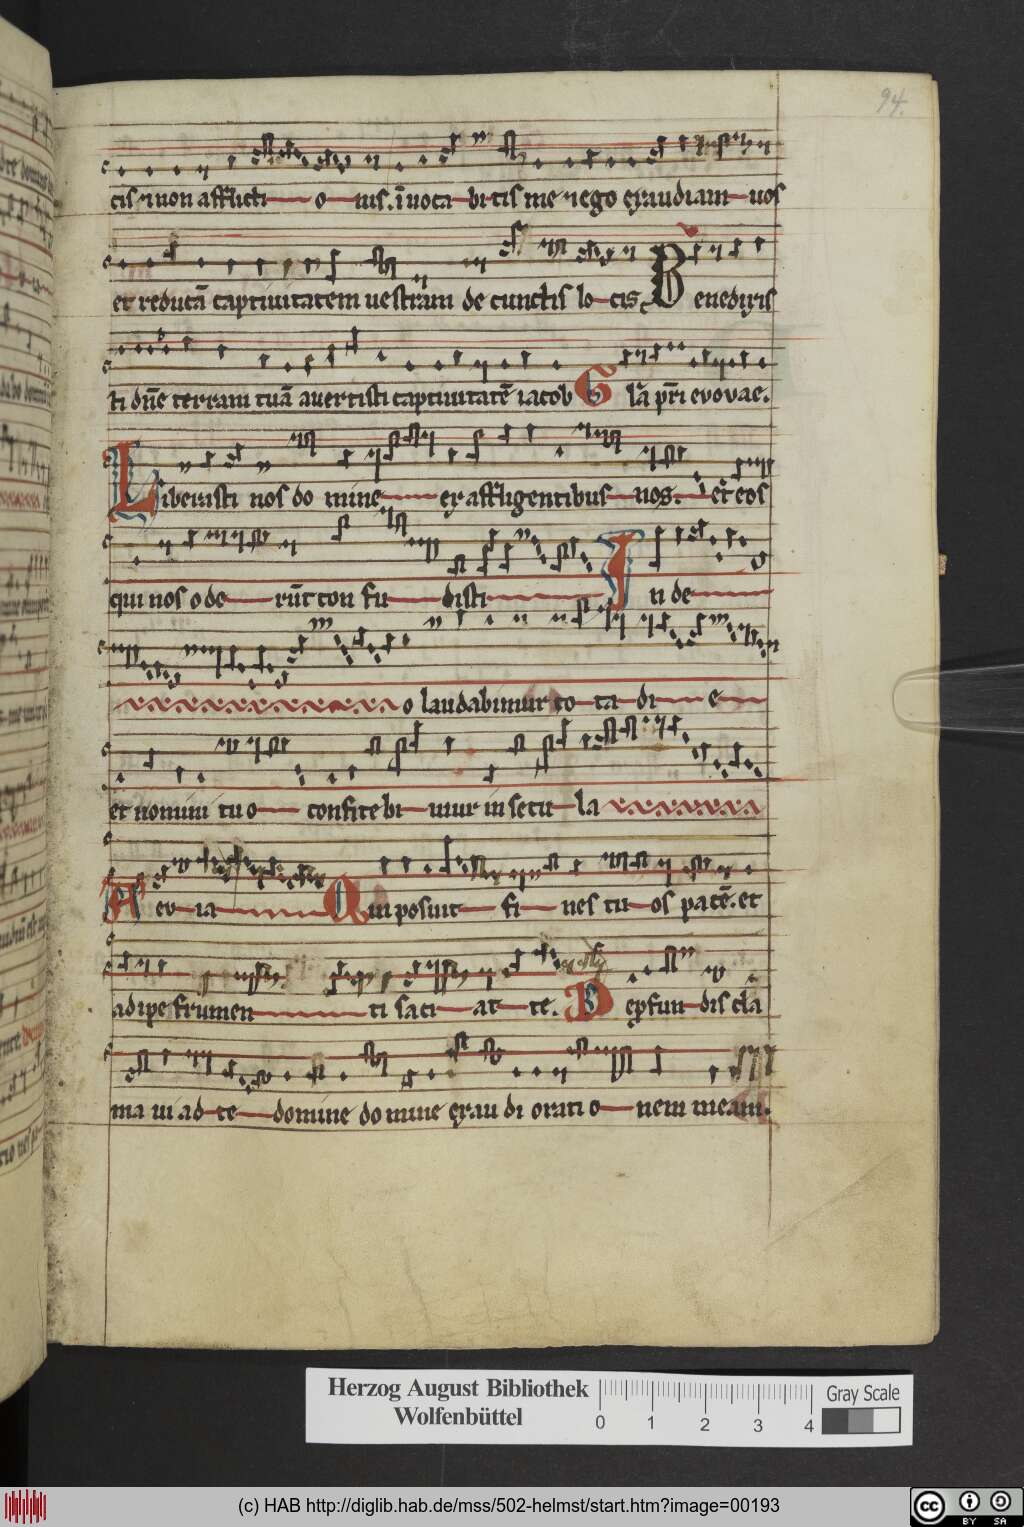 94.
cis ⁊ non afflicti o nis. īuoca bi tis me ⁊ ego exaudiam uos
et reducā captiuitatem uestram de cunctis lo cis. Benedixis
ti dn̄e terram tuā auertisti captiuitatē iacob Gla pr̄i evovae.
Liberasti nos do mine ex affligentibus nos. et eos
qui nos ode rūt con fu disti In de
o laudabimur to ta di e
et nomini tuo confitebi mur in secu la
Aev ia Qui posuit fi nes tu os pacē. et
adipe frumen ti saci at te. De p̱fun dis cla
ma ui ad te domine domine exau di oratio nem meam.
Herzog August Bibliothek
Wolfenbüttel
0 1 2 3 4
Gray Scale
(c) HAB http://diglib.hab.de/mss/502-helmst/start.htm?image=00193
cc BY SA